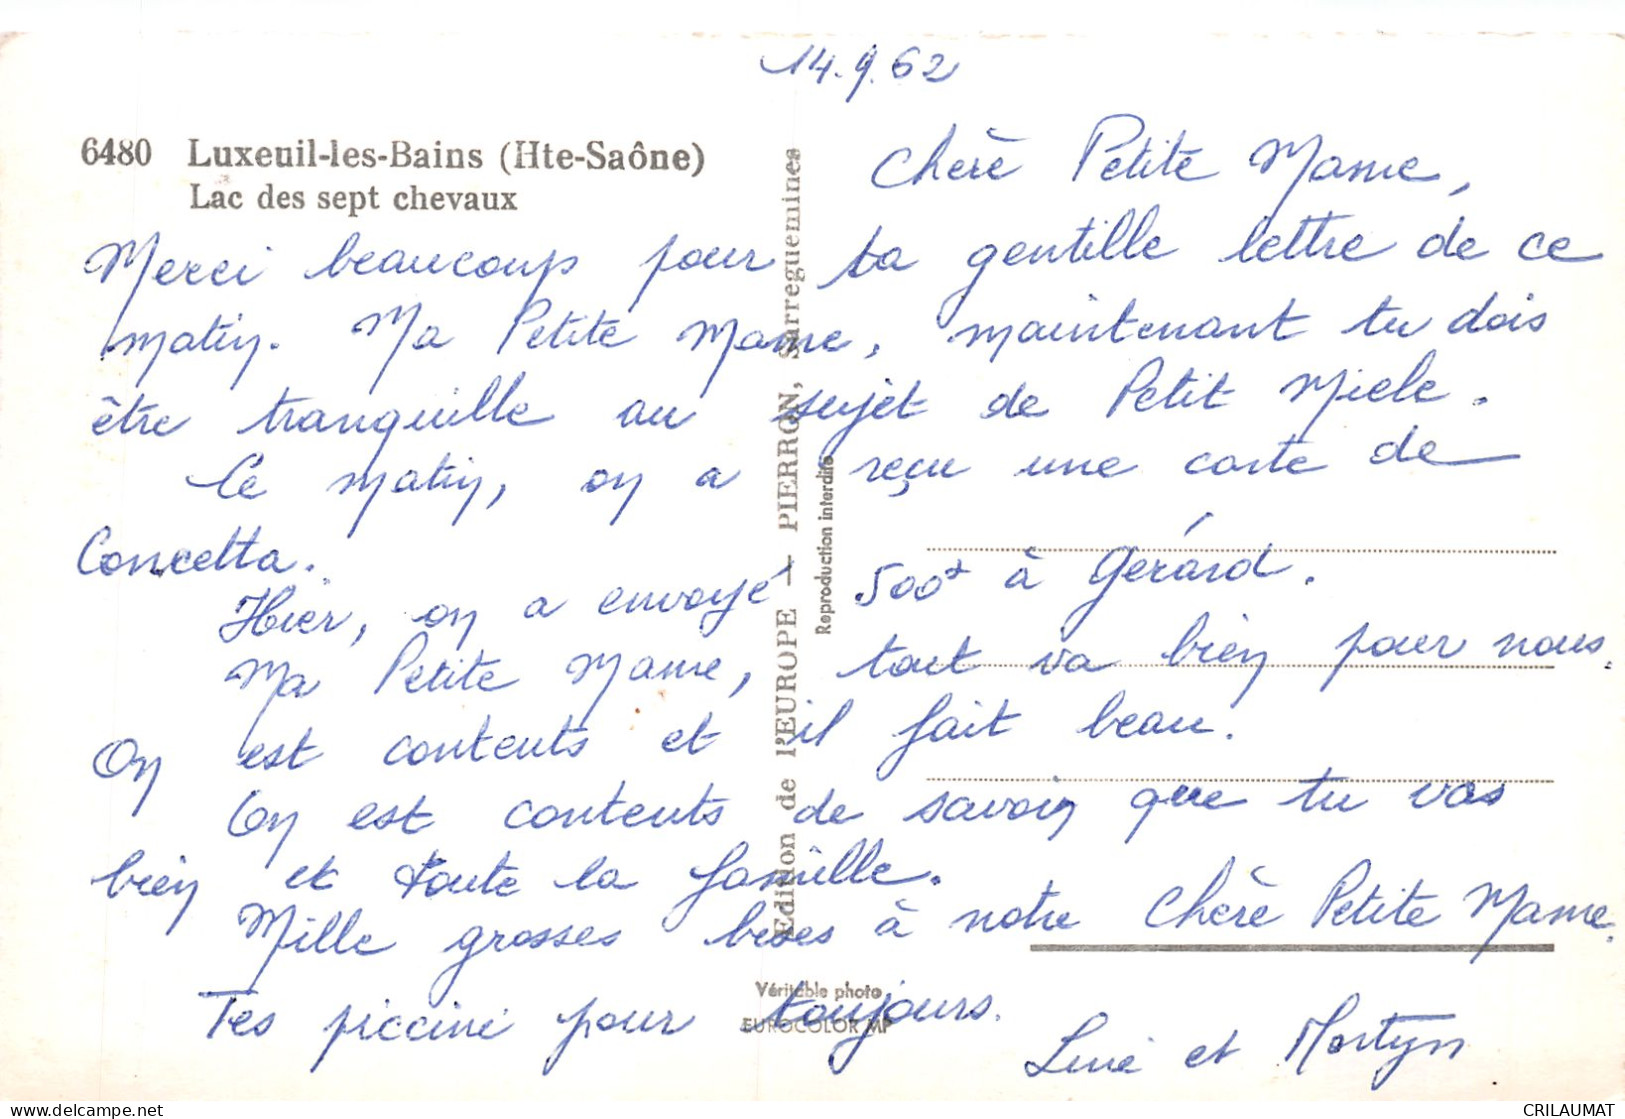 14.9.62
6480 Luxeuil-les-Bains (Hte-Saône)
Lac des sept chevaux
Chère Petite Mame,
Merci beaucoup pour ta gentille lettre de ce
matin. Ma Petite Mame, maintenant tu dois
être tranquille au sujet de Petit Miele.
Ce matin, on a reçu une carte de
Concetta.
Hier, on a envoyé 500F à Gérard.
Ma Petite Mame, tout va bien pour nous.
On est contents et il fait beau.
On est contents de savoir que tu vas
bien et toute la famille.
Mille grosses bises à notre Chère Petite Mame.
Tes piccini pour toujours.
et Martyn
Edition de l'EUROPE — PIERRON, Sarreguemines
Reproduction interdite
Véritable photo
EUROCOLOR MP
CRILAUMAT